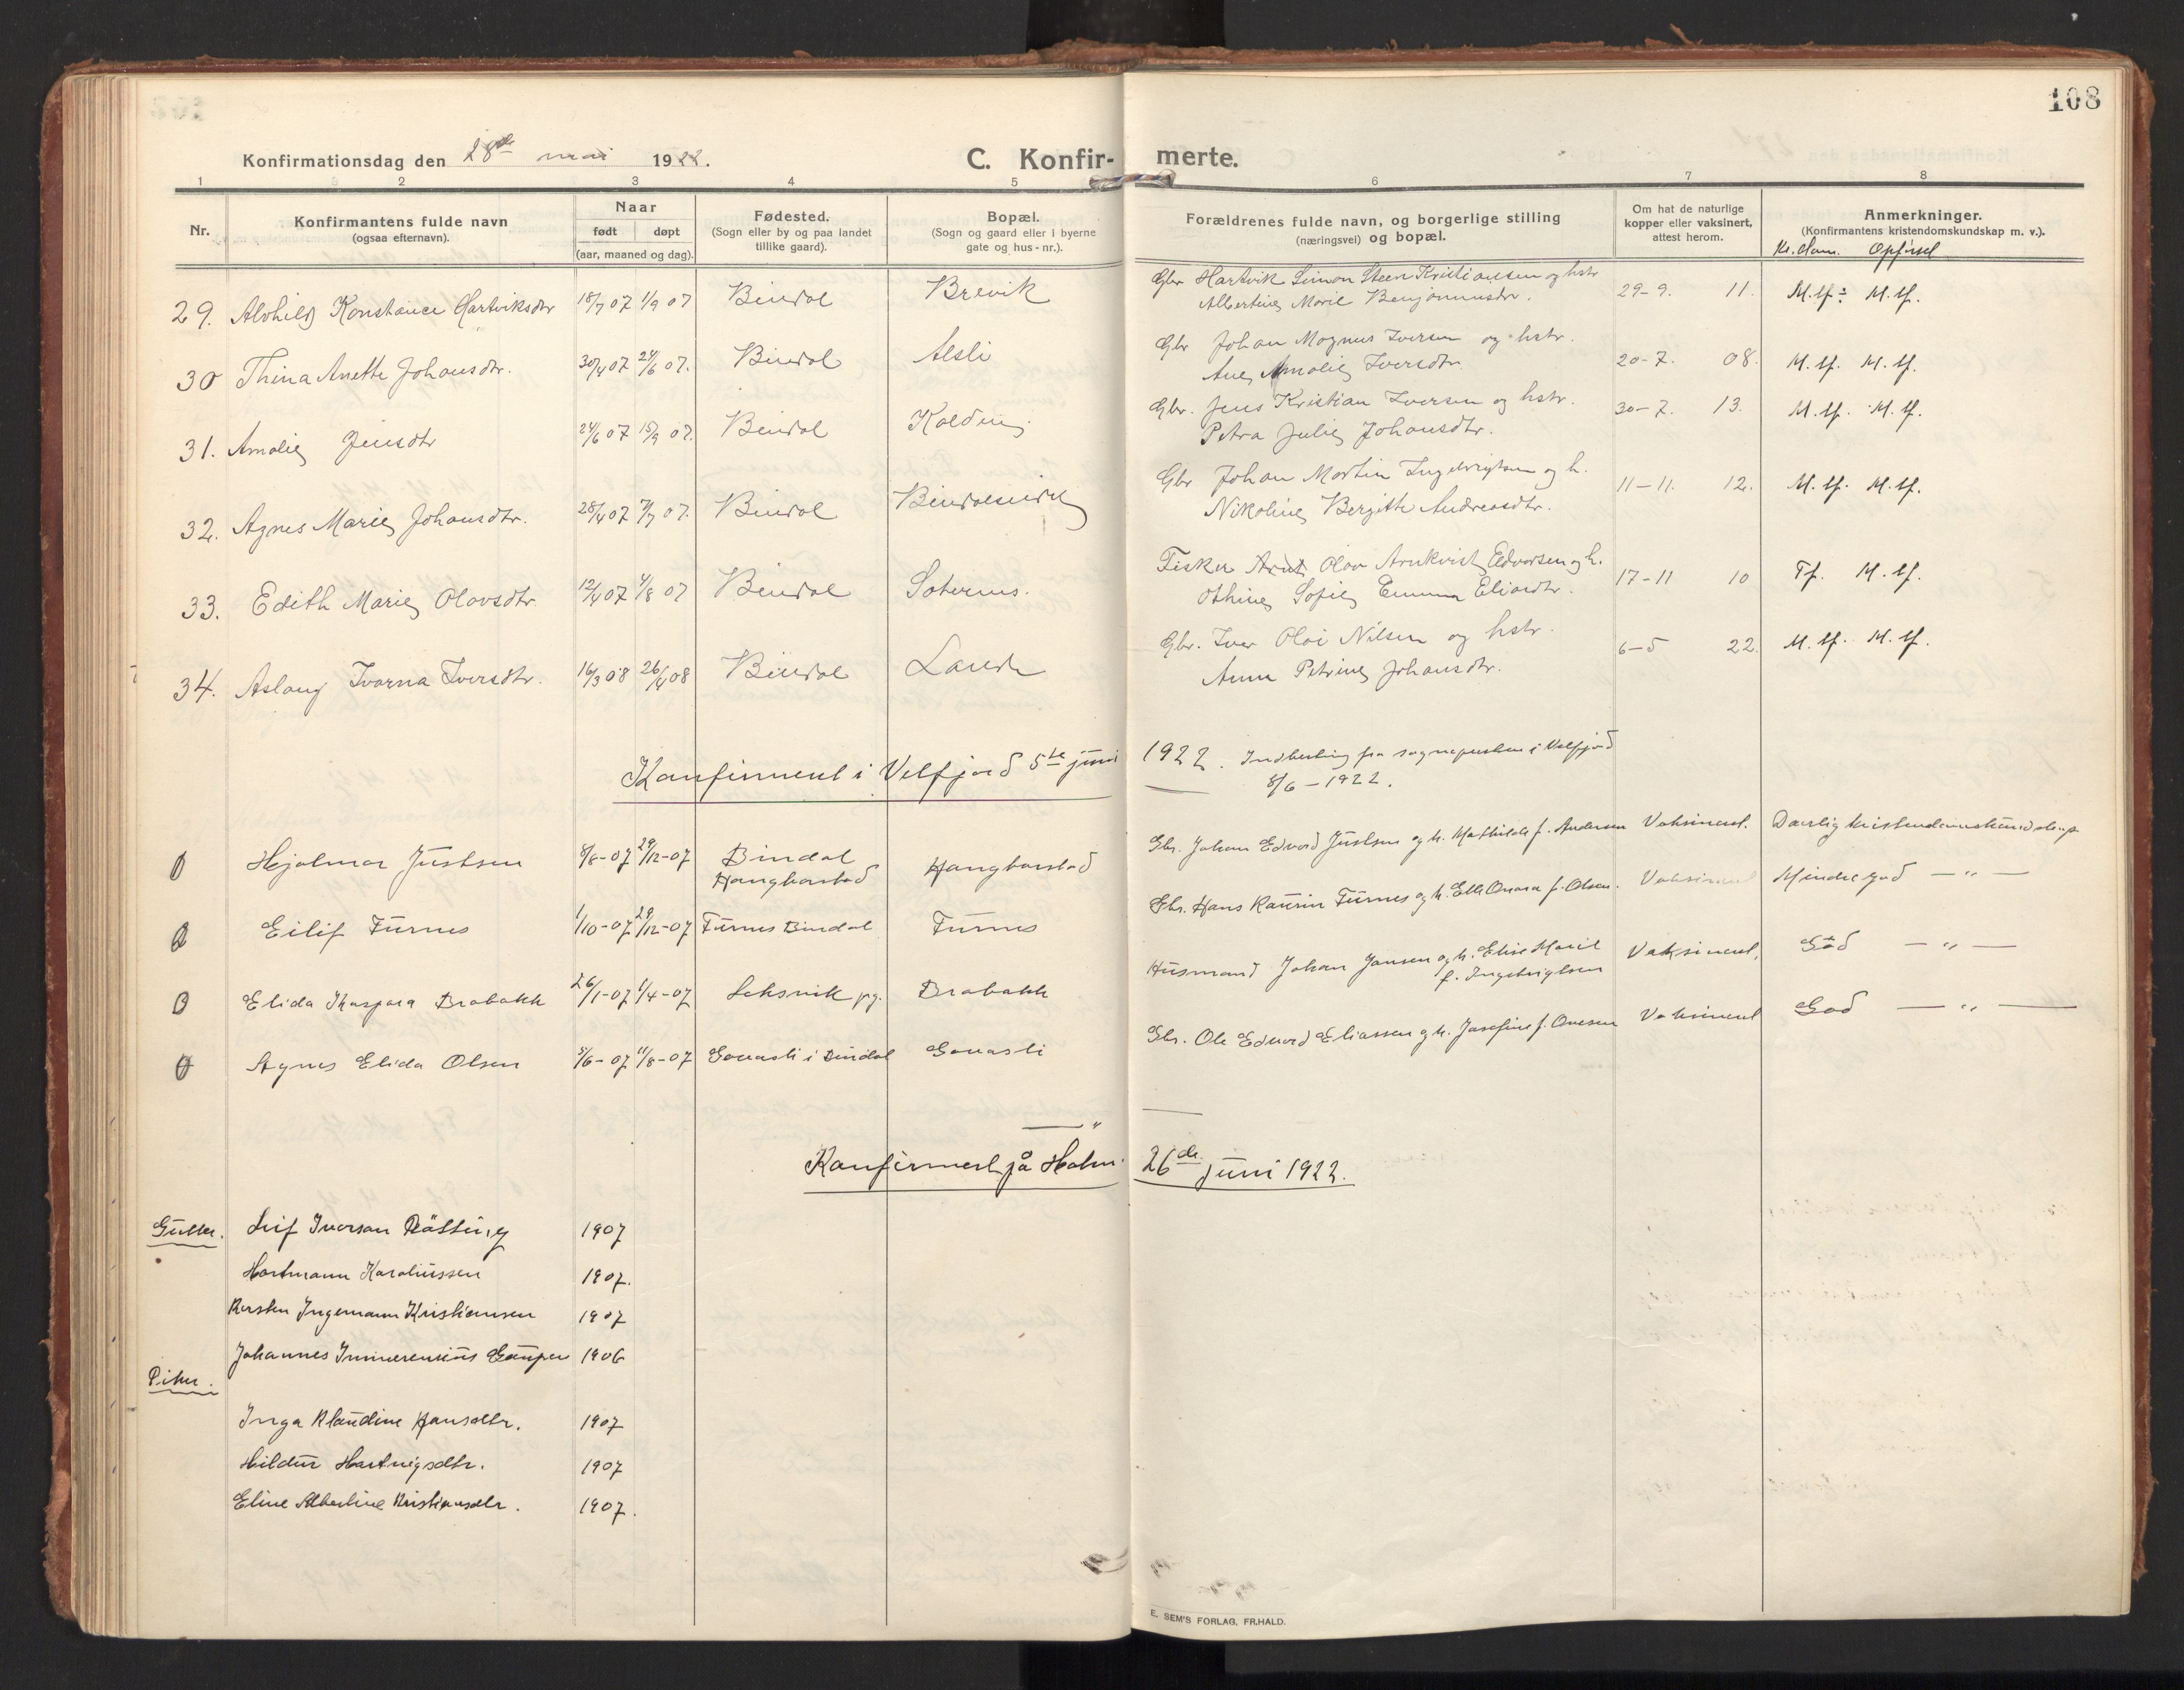 108
Konfirmationsdag den 28de mai 1922.
C. Konfir-
merte.
1 2 3 4 5 6 7 8
Nr.
Konfirmantens fulde navn
(ogsaa efternavn).
Naar
født døpt
(aar, maaned og dag).
Fødested.
(Sogn eller by og paa landet
tillike gaard).
Bopæl.
(Sogn og gaard eller i byerne
gate og hus-nr.).
Forældrenes fulde navn, og borgerlige stilling
(næringsvei) og bopæl.
Om hat de naturlige
kopper eller vaksinert,
attest herom.
Anmerkninger.
(Konfirmantens kristendomskundskap m. v.).
Kr.dom. Opførsel
29. Alvhild Konstance Hartviksdtr 18/7 07 1/9 07 Bindal Brevik Gbr Hartvik Simon Steen Kristiansen og hstr 29-9. 11. M.tf÷ M.tf.
Albertine Marie Benjaminsdtr.
30 Thina Anette Johansdtr. 30/4 07 24/6 07. Bindal Aalsli Gbr Johan Magnus Iversen og hstr. 20-7. 08. M.tf. M.tf.
Ane Amalie Iversdtr.
31. Amalie Jensdtr 24/6 07 15/9 07. Bindal Kolding Gbr. Jens Kristian Iversen og hstr. 30-7. 13. M.tf. M.tf.
Petra Julie Johansdtr.
32. Agnes Marie Johansdtr. 28/4 07 7/7 07. Bindal Bindalseidet Gbr Johan Martin Ingebrigtsen og h. 11-11. 12. M.tf. M.tf.
Nikoline Bergitte Andreasdtr.
33. Edith Marie Olavsdtr 12/4 07 4/8 07 Bindal Saternes. Fisker Olav Arnkvist Edvardsen og h. 17-11 10 Tf. M.tf.
Othine Sofie Emma Eliasdtr.
34. Aslaug Ivarna Iversdtr. 16/3 08 26/4 08 Bindal Lande Gbr. Iver Olai Nilsen og hstr. 6-5 22. M.tf. M.tf.
Anne Petrine Johansdtr.
Konfirmert i Velfjord 5te juni 1922. Indberetning fra sognepresten i Velfjord
8/6 - 1922.
1 Hjalmar Justsen 8/8-07 29/12-07 Bindal Hangharstad Gbr. Johan Edvard Justsen og h. Mathilde f. Andersen Vaksinert. Daarlig kristendomskundskap
Hangharstad
2 Eilif Furnes 1/10-07 29/12-07 Furnes Bindal Furnes Gbr. Hans Kaurin Furnes og h. Elle Onara f. Olsen. Vaksinert Mindre god — " —
3 Elida Kaspara Brabakk 26/1-07 1/4-07 Leksvik pg. Brabakk Husmand Johan Jansen og h. Elise Marie Vaksinert, God — " —
f. Ingebrigtsen
4 Agnes Elida Olsen 5/6-07 11/8-07 Gaaasli i Bindal Gaaasli Gbr. Ole Edvard Eliassen og h. Josefine f. Ovesen Vaksinert God — " —
— " —
Konfirmert på Holm 26de juni 1922.
Gutter. Leif Iversen Røtting 1907
Hartmann Karoliussen 1907.
Karsten Ingemann Kristiansen 1907
Johannes Immerensius Gaupen 1906
Piker.
Inga Klaudine Hansdtr. 1907
Hildur Hartvigsdtr. 1907
Eline Albertine Kristiansdtr. 1907.
E. SEM'S FORLAG, FR.HALD.